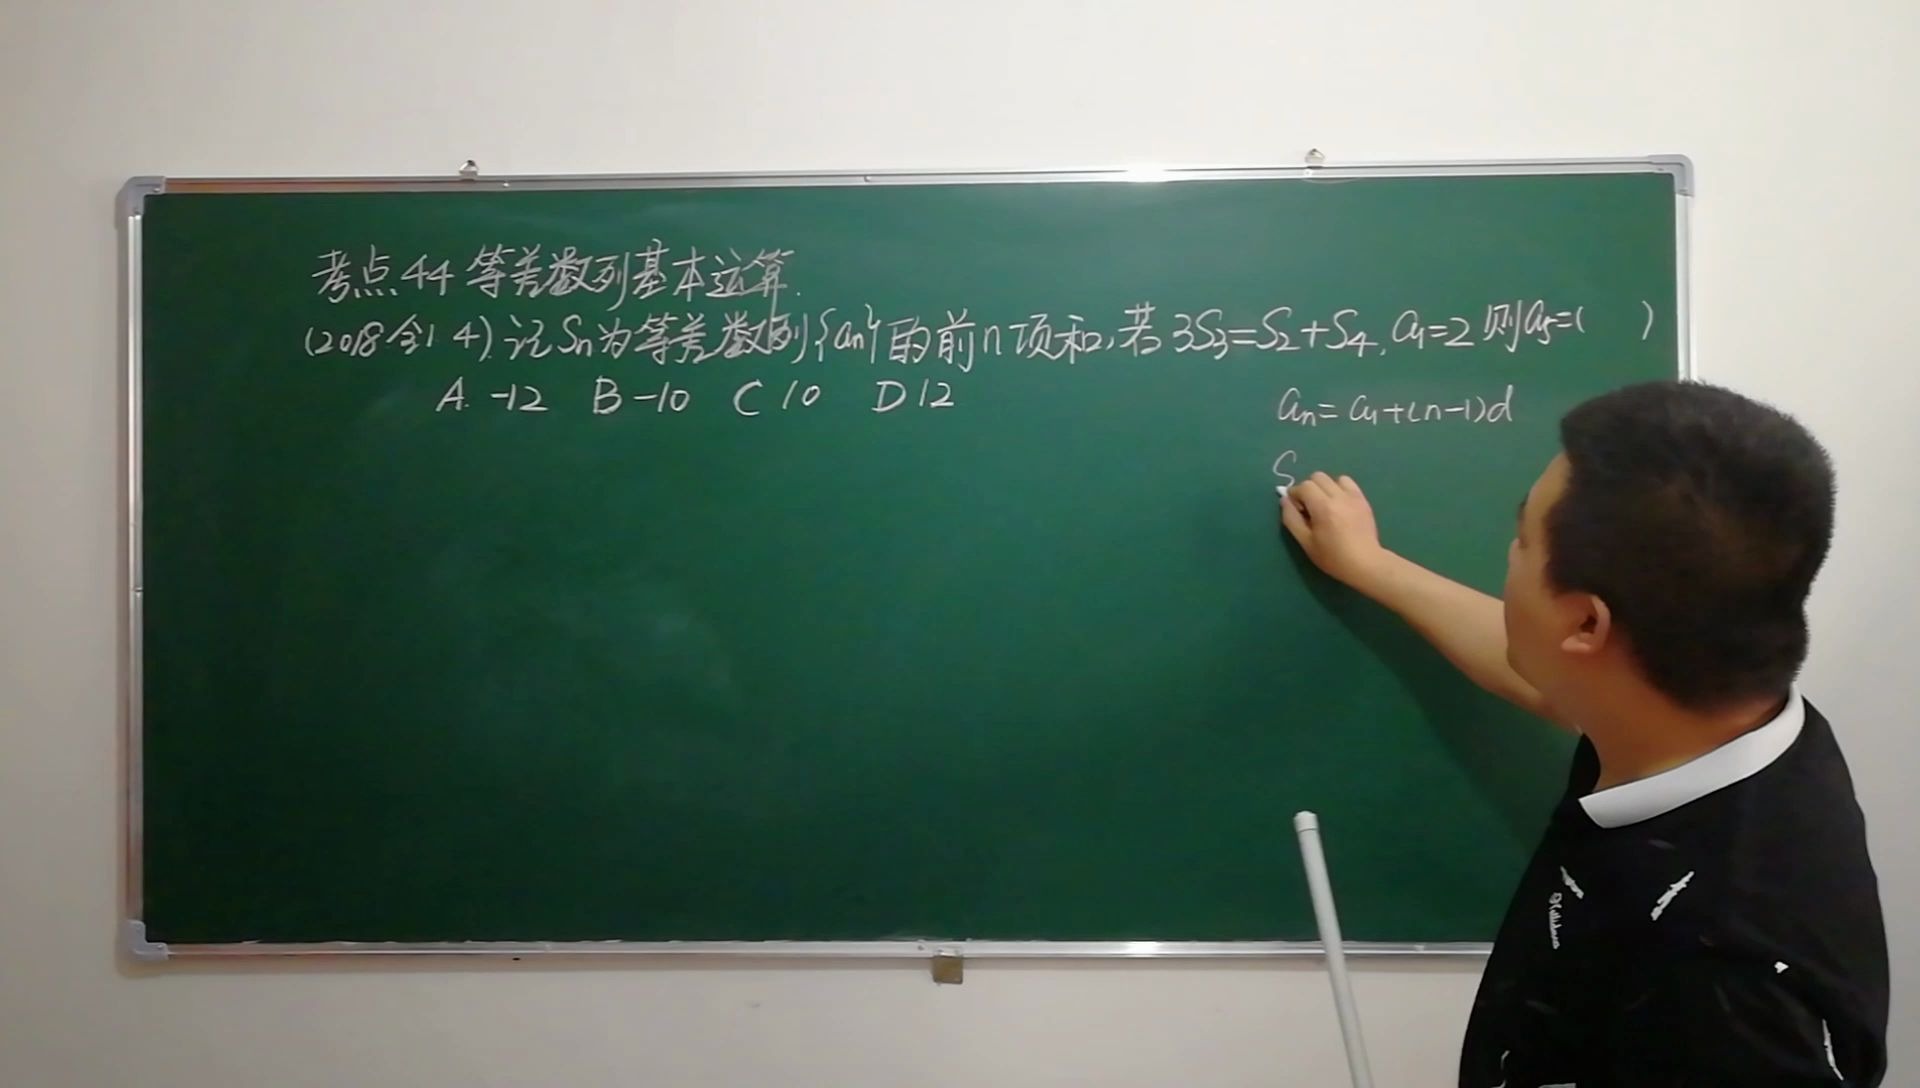 考点44 等差数列基本运算.
(2018全1 4).记Sn为等差数列{an}的前n项和,若3S3=S2+S4,a1=2则a5=( )
A. -12 B -10 C 10 D 12
an=a1+(n-1)d
S